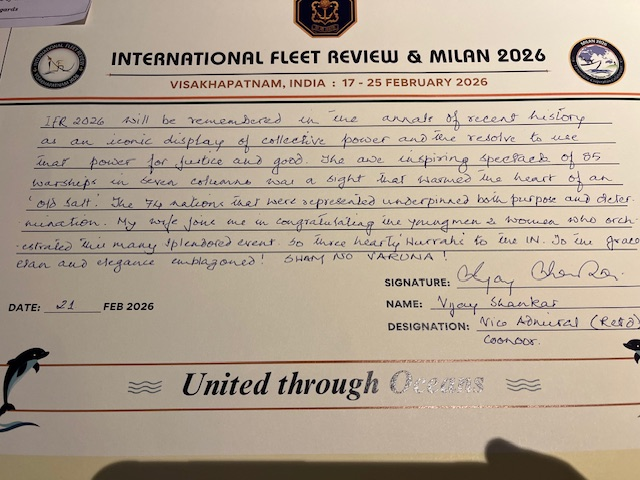 egards
INTERNATIONAL FLEET REVIEW & MILAN 2026
VISAKHAPATNAM, INDIA : 17 - 25 FEBRUARY 2026
IFR 2026 will be remembered in the annals of recent history
as an iconic display of collective power and the resolve to use
that power for justice and good. The awe inspiring spectacle of 85
warships in seven columns was a sight that warmed the heart of an
'old salt'. The 74 nations that were represented underpinned both purpose and deter-
mination. My wife joins me in congratulating the young men & women who orch-
estrated this many splendored event. So three hearty 'Hurrahs' to the IN. To the grace
elan and elegance emblazoned! SHAM NO VARUNA!
SIGNATURE:
NAME: Vijay Shankar
DATE: 21 FEB 2026
DESIGNATION: Vice Admiral (Retd)
Coonoor.
United through Oceans